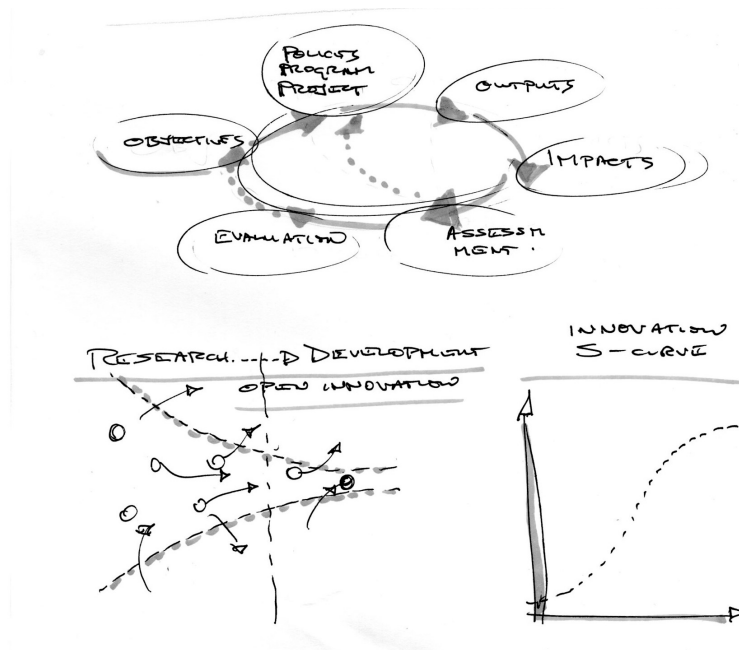 POLICIES
PROGRAM
PROJECT
OUTPUTS
OBJECTIVES
IMPACTS
EVALUATION
ASSESSM
MENT.
RESEARCH ----> DEVELOPMENT
OPEN INNOVATION
INNOVATION
S-CURVE